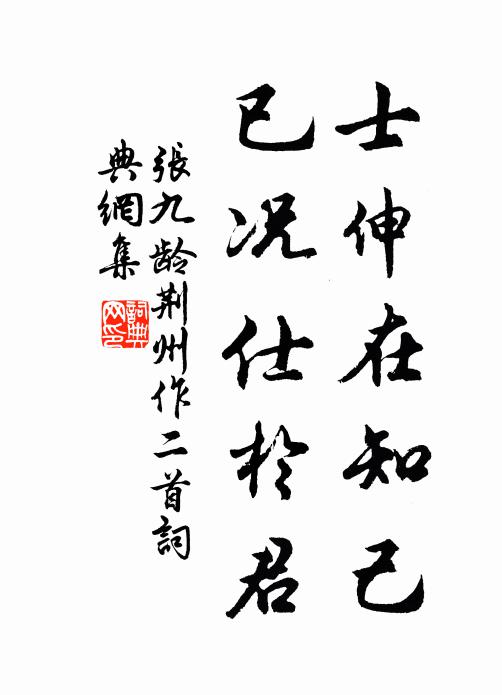 士伸在知己
已况仕於君
張九龄荆州作二首詞
典網集
詞典网印